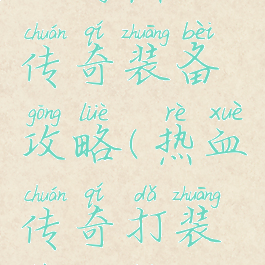 chuán qí zhuāng bèi
传奇装备
gōng lüè rè xuè
攻略(热血
chuán qí dǎ zhuāng
传奇打装